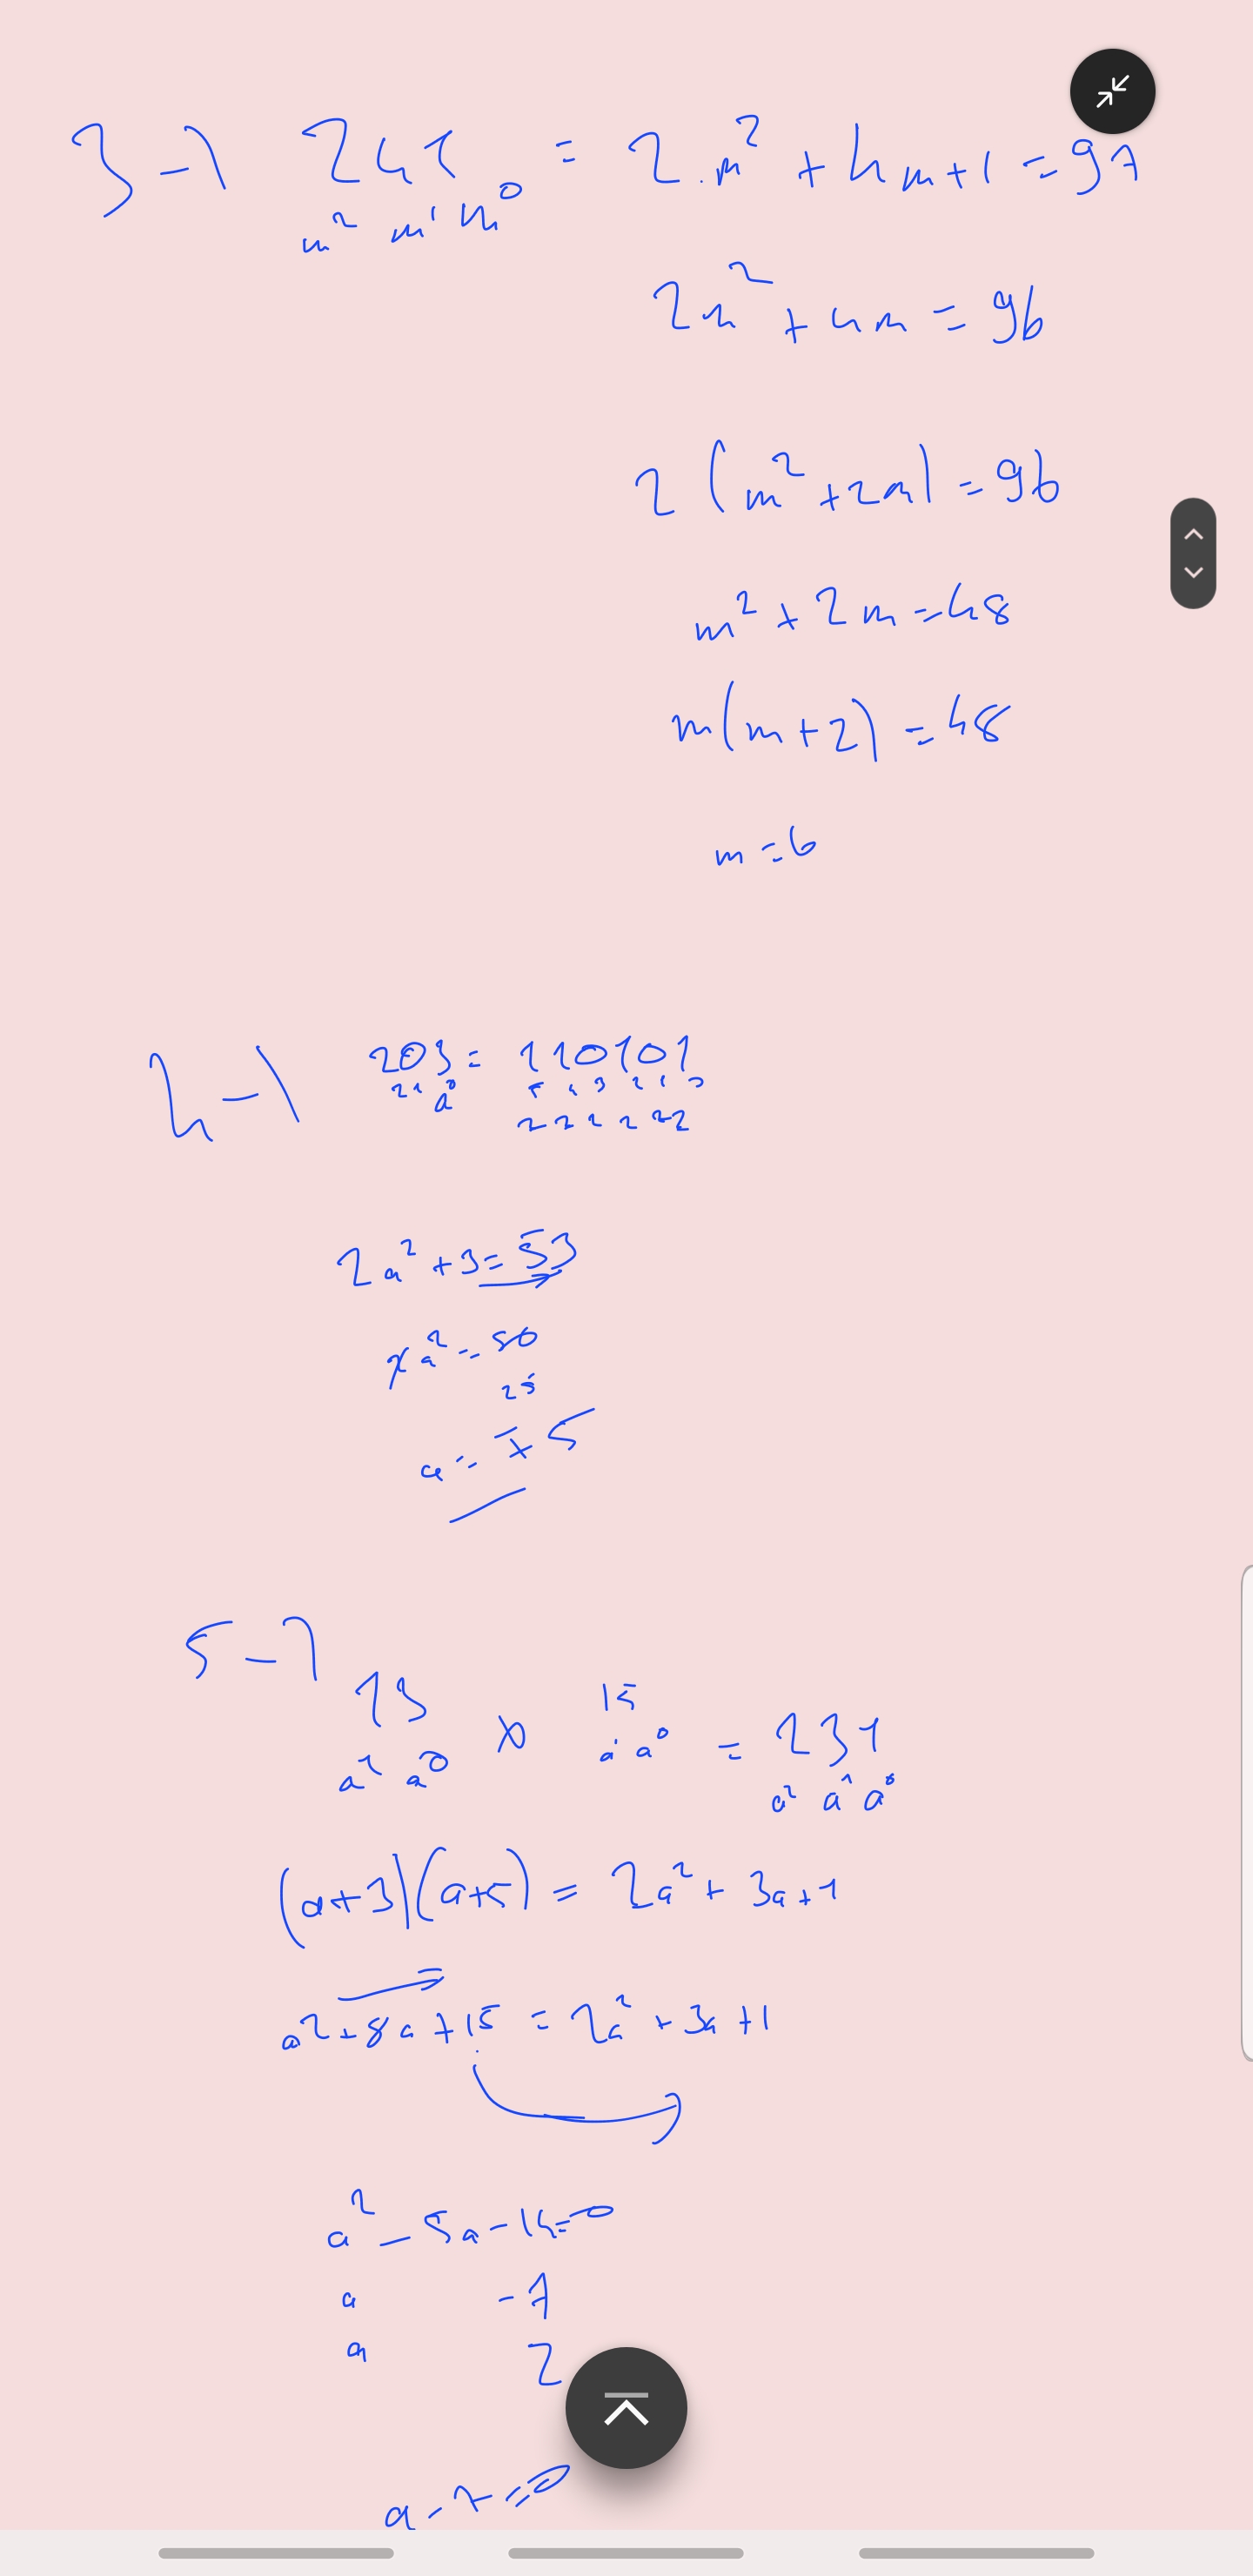 3-) 241 = 2.m² + 4m+1 = 97
m² m¹ m⁰
2m² + 4m = 96
2(m²+2m) = 96
m² + 2m = 48
m(m+2) = 48
m = 6
4-) 203 = 110101
2 1 a⁰ 5 4 3 2 1 0
2 2 2 2 2 2
2a² + 3 = 53
2a² = 50
25
a = ∓5
5-) 13 x 15 = 231
a¹ a⁰ a¹ a⁰ a² a¹ a⁰
(a+3)(a+5) = 2a² + 3a + 1
a² + 8a + 15 = 2a² + 3a + 1
a² - 5a - 14 = 0
a -7
a 2
a - 7 = 0